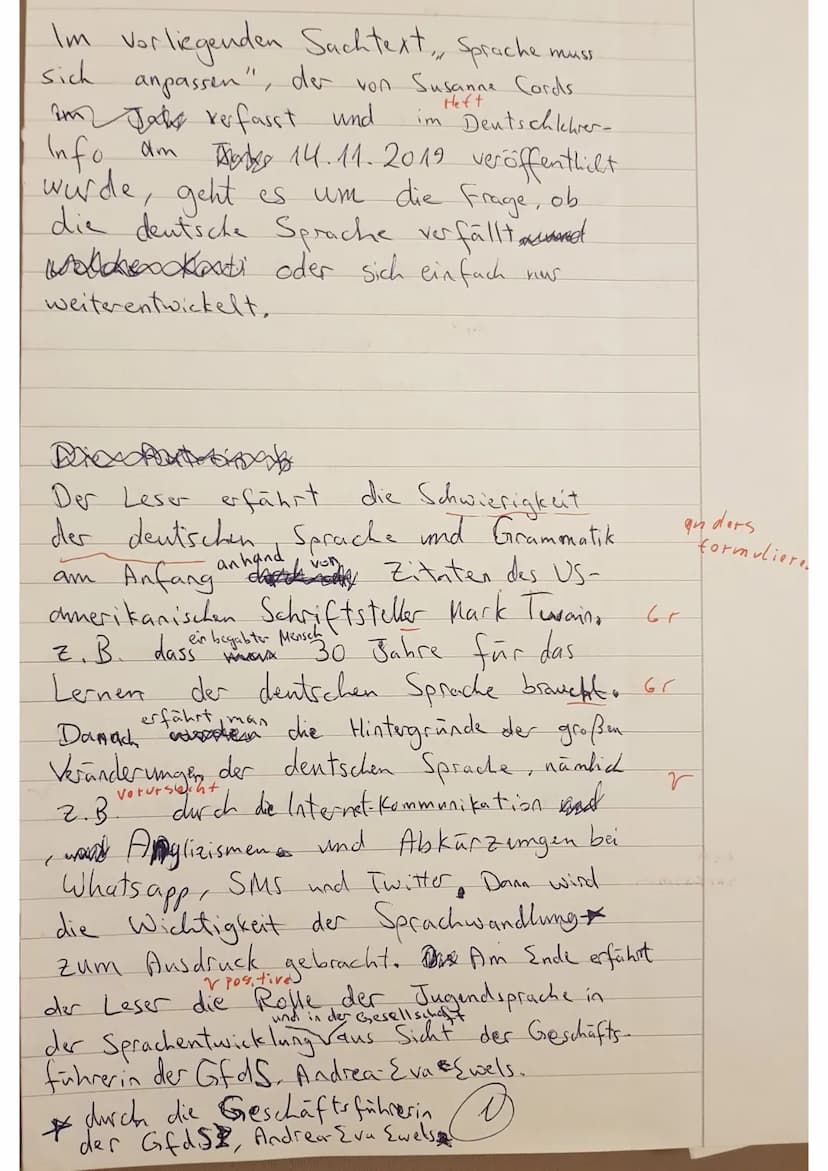 Im vorliegenden Sachtext „Sprache muss
sich anpassen", der von Susanne Cords
Heft
verfasst und im Deutschlehrer-
Info am 14.11.2019 veröffentlicht
wurde, geht es um die Frage, ob
die deutsche Sprache verfällt
oder sich einfach nur
weiterentwickelt.
Der Leser erfährt die Schwierigkeit
der deutschen Sprache und Grammatik
anders
formulieren
anhand von
am Anfang Zitaten des US-
amerikanischen Schriftsteller Mark Twain, Gr
ein begabter Mensch
z.B. dass 30 Jahre für das
Lernen der deutschen Sprache braucht. Gr
erfährt man
Danach die Hintergründe der großen
Veränderungen der deutschen Sprache, nämlich
verursacht
z.B. durch die Internet-Kommunikation
, Anglizismen und Abkürzungen bei
Whatsapp, SMS und Twitter. Dann wird
die Wichtigkeit der Sprachwandlung*
zum Ausdruck gebracht. Am Ende erfährt
positive
der Leser die Rolle der Jugendsprache in
und in der Gesellschaft
der Sprachentwicklung aus Sicht der Geschäfts-
führerin der GfdS, Andrea-Eva Ewels.
* durch die Geschäftsführerin
der GfdS, Andrea-Eva Ewels
1